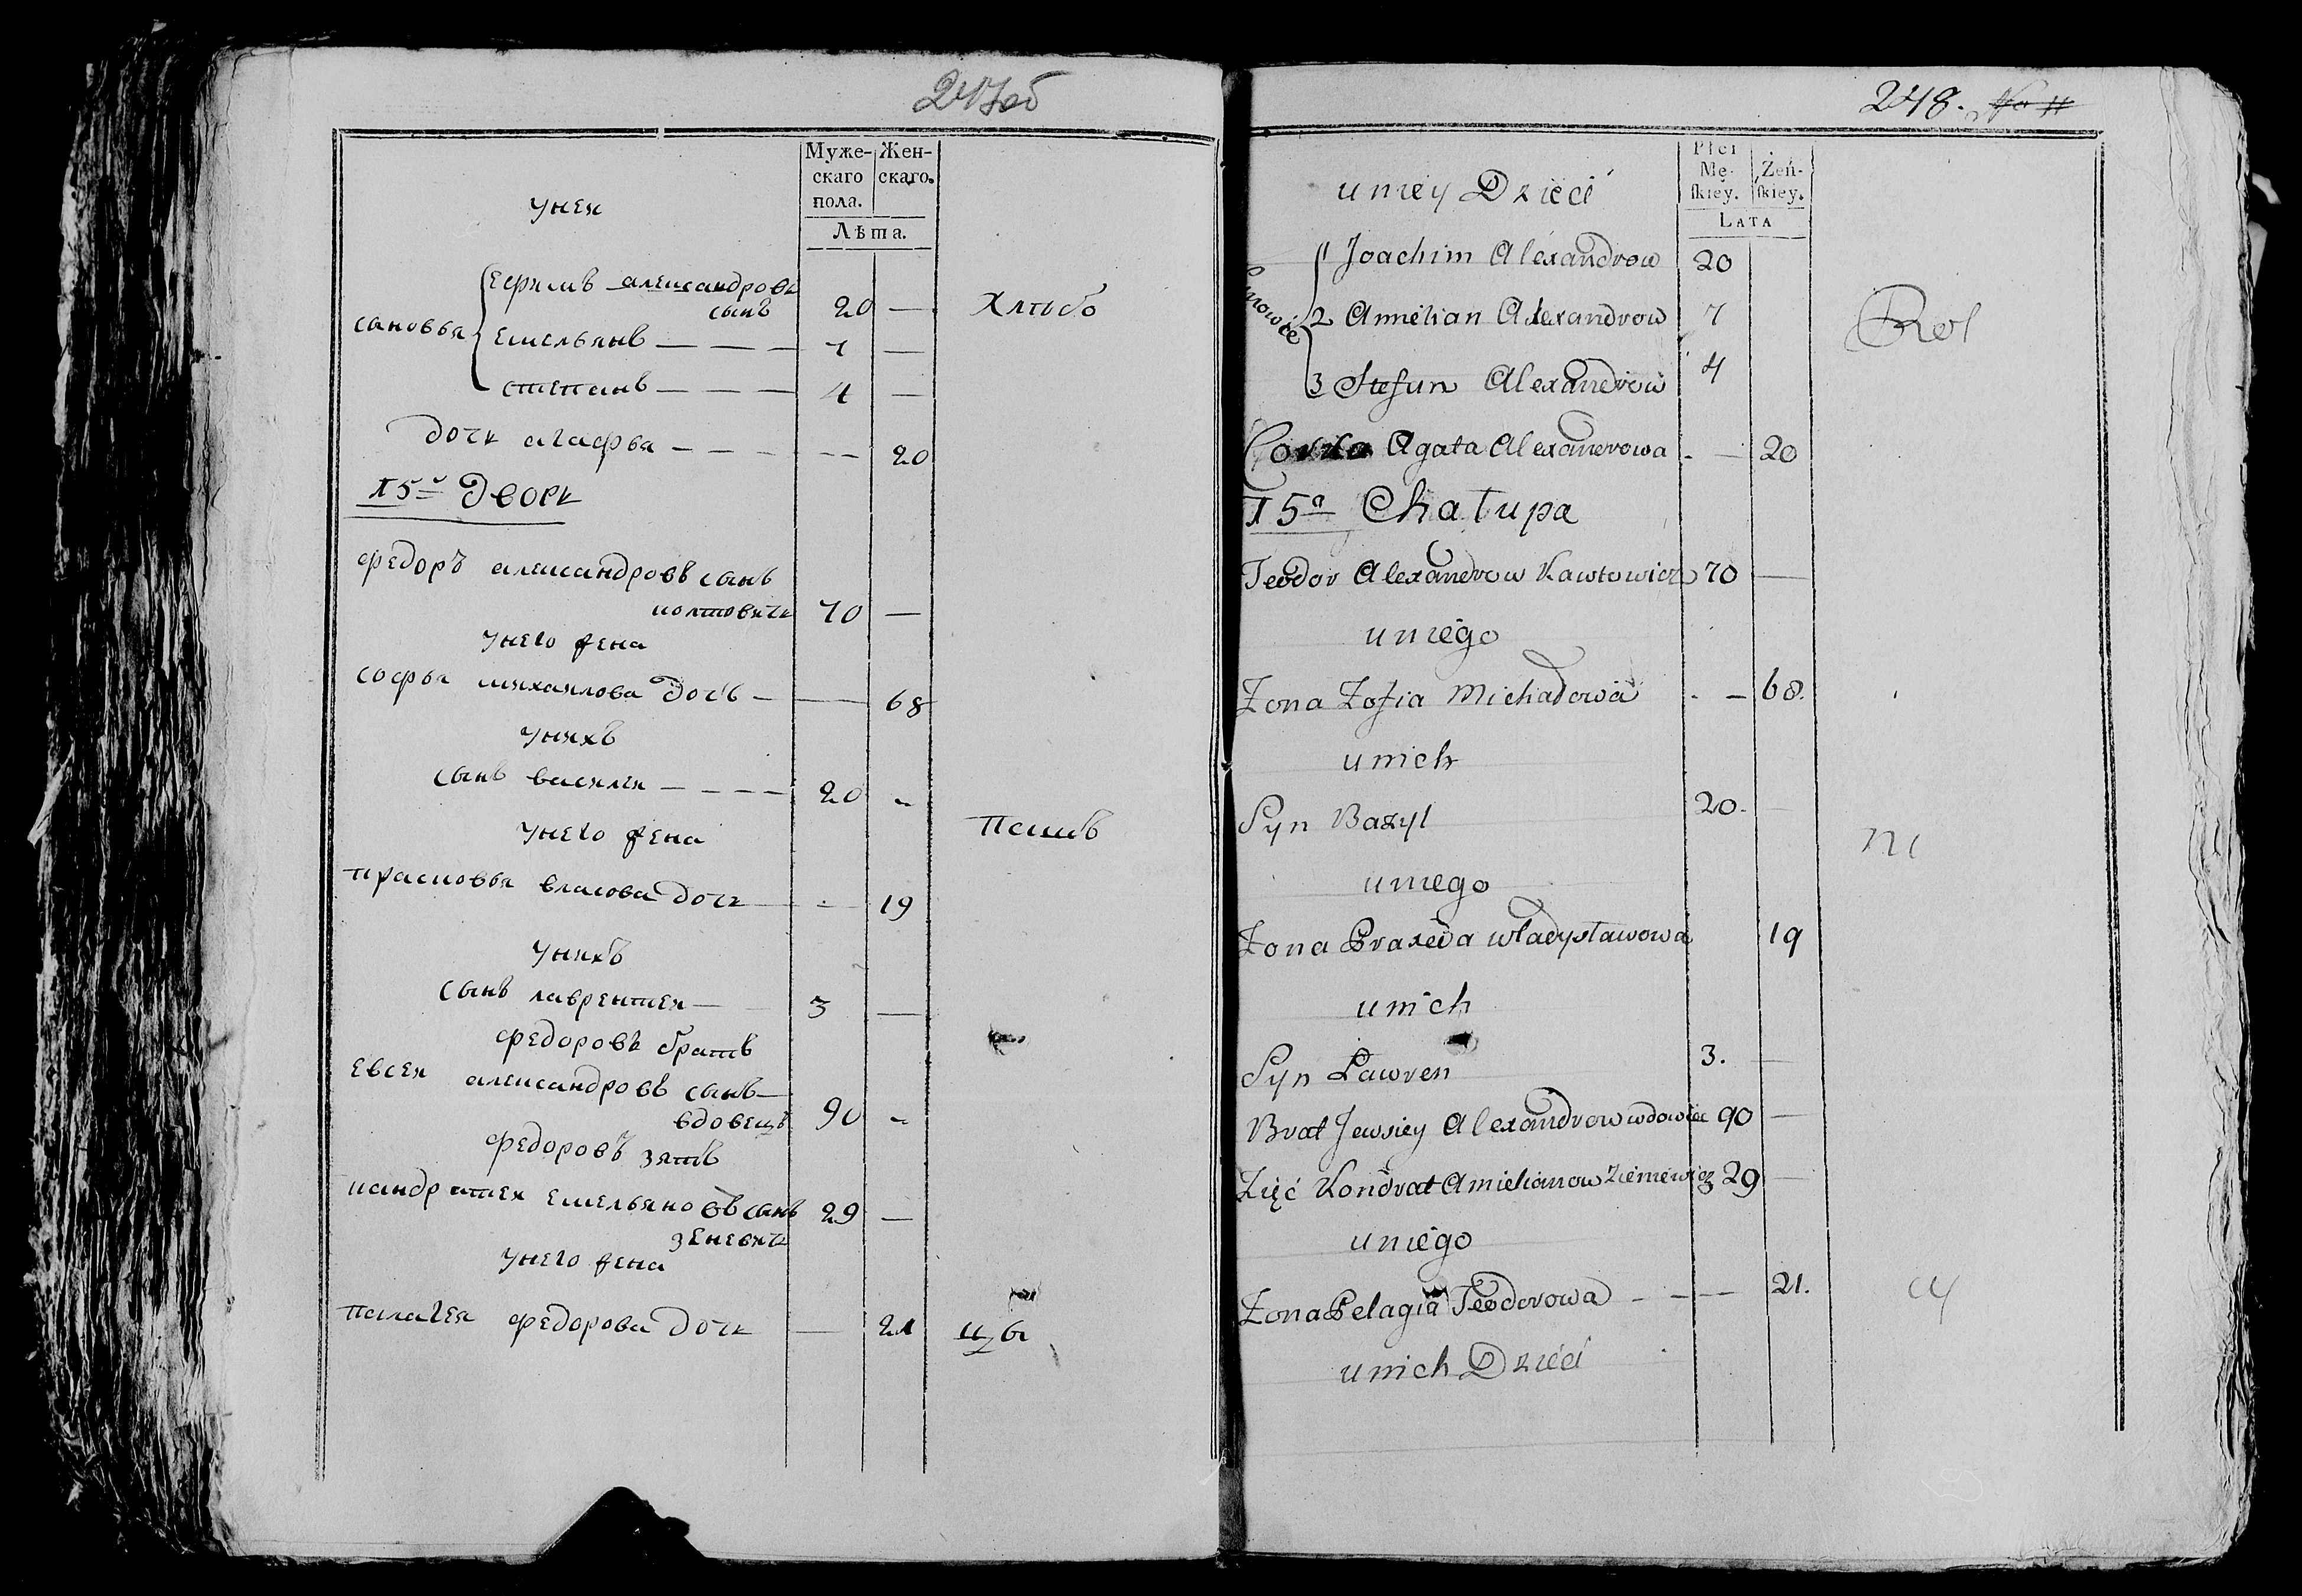 247об
Муже-
скаго
пола.
Жен-
скаго.
Лѣта.
унея
сановья
Ефимъ александровъ
сынъ 20 —
Хлѣбо
Емельянъ — — — 7 —
степанъ — — — 4 —
дочь агафья — — — — — 20
15й дворъ
федоръ александровъ сынъ
колтовичь 70 —
унего жена
софья михаилова дочь — — 68
унихъ
сынъ василеи — — — — 20 -
унего жена
пашъ
прасковья власова дочь — - — 19
унихъ
сынъ лаврентеи — 3 —
федоровъ братъ
евсеи александровъ сынъ —
вдовецъ 90 -
федоровъ зять
кандратеи емельяновъ сынъ 29 —
зеневичь
унего жена
палагея федорова дочь — 21 цы
248. No 11
Płci
Mę-
ſkiey.
Żeń-
ſkiey.
LATA
uniey Dzieci
Synowie
1 Joachim Alexandrow 20
2 Amielian Alexandrow 7
Rol
3 Stefan Alexandrow 4
Corka Agata Alexandrowa - — 20
15a Chałupa
Teodor Alexandrow Kawtowicz 70 —
uniego
Żona Zofia Michałowa - — 68.
unich
Syn Bazyl 20. —
ni
uniego
Żona Praxeda Władysławowa 19
unich
Syn Ławren 3. —
Brat Jewsiey Alexandrow wdowiec 90 —
Zięć Kondrat Amielianow Zieniewicz 29 —
uniego
Żona Pelagia Teodorowa — — — 21.
cy
unich Dzieci